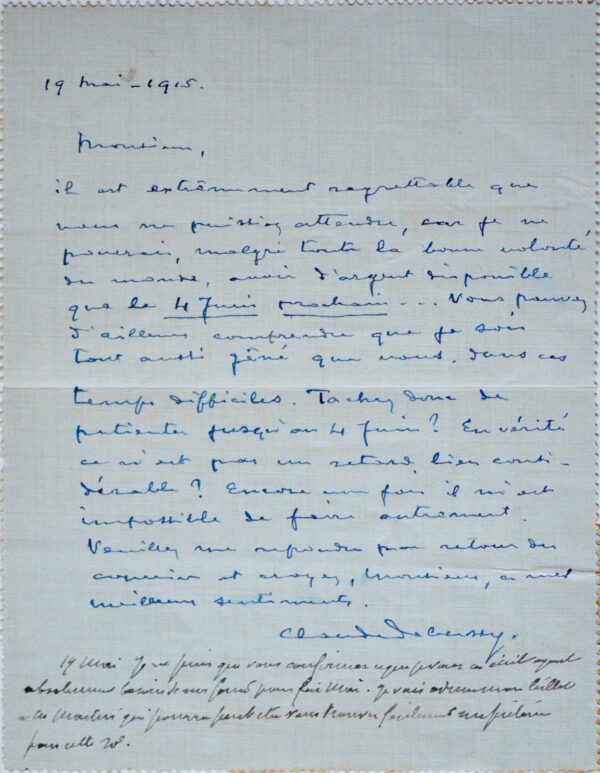 19 Mai - 1915.
Monsieur,
il est extrêmement regrettable que
vous ne puissiez attendre, car je ne
pourrais, malgré toute la bonne volonté
du monde, avoir d'argent disponible
que le 4 Juin prochain... Vous pouvez
d'ailleurs comprendre que je sois
tout aussi gêné que vous. dans ces
temps difficiles. Tachez donc de
patienter jusqu'au 4 Juin ? En vérité
ce n'est pas un retard bien consi-
dérable ? Encore une fois il m'est
impossible de faire autrement.
Veuillez me repondre par retour du
courrier et croyez, Monsieur, à mes
meilleurs sentiments.
Claude Debussy.
19 Mai Je ne puis que vous confirmer ce que je vous ai écrit ayant
absolument besoin de mes fonds pour fin Mai. Je vais
qui pourra peut être vous trouver facilement
pour cette